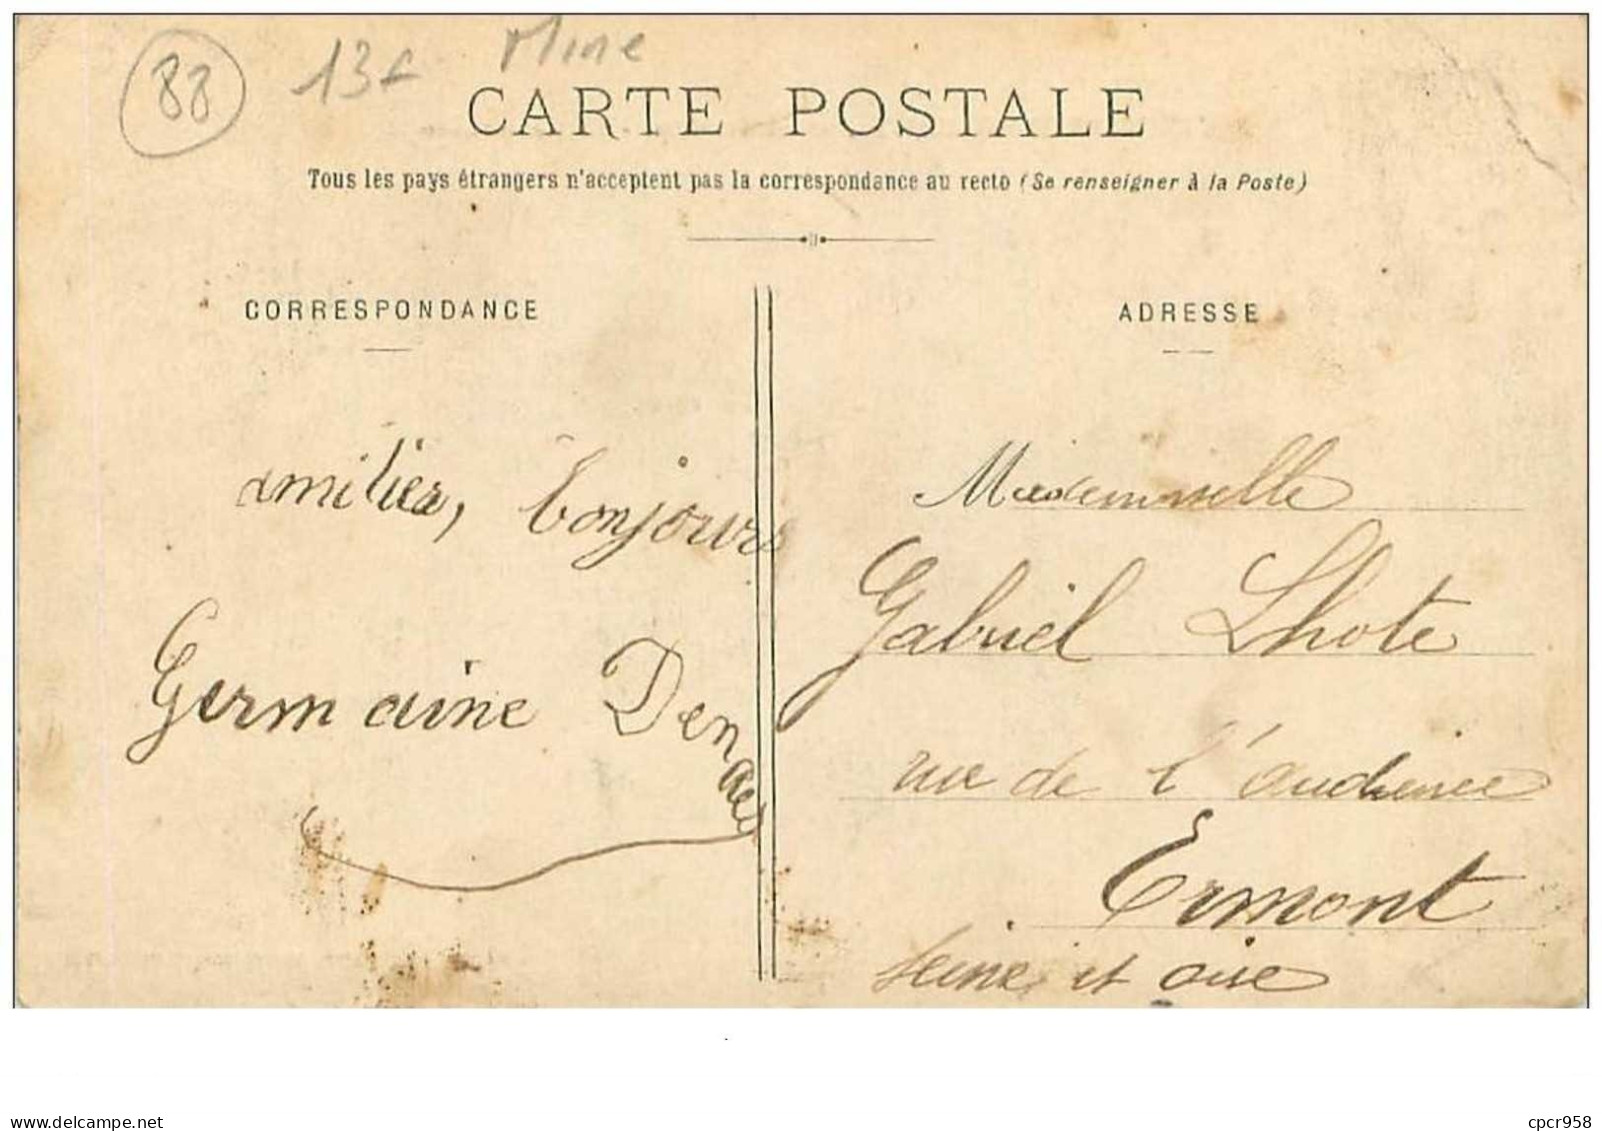 88 13f Mine
CARTE POSTALE
Tous les pays étrangers n'acceptent pas la correspondance au recto (Se renseigner à la Poste)
CORRESPONDANCE
amitiés, bonjours
Germaine
ADRESSE
Mademoiselle
Gabriel Lhote
rue de l'audience
Ermont
Seine et oise
www.delcampe.net
cpcr958